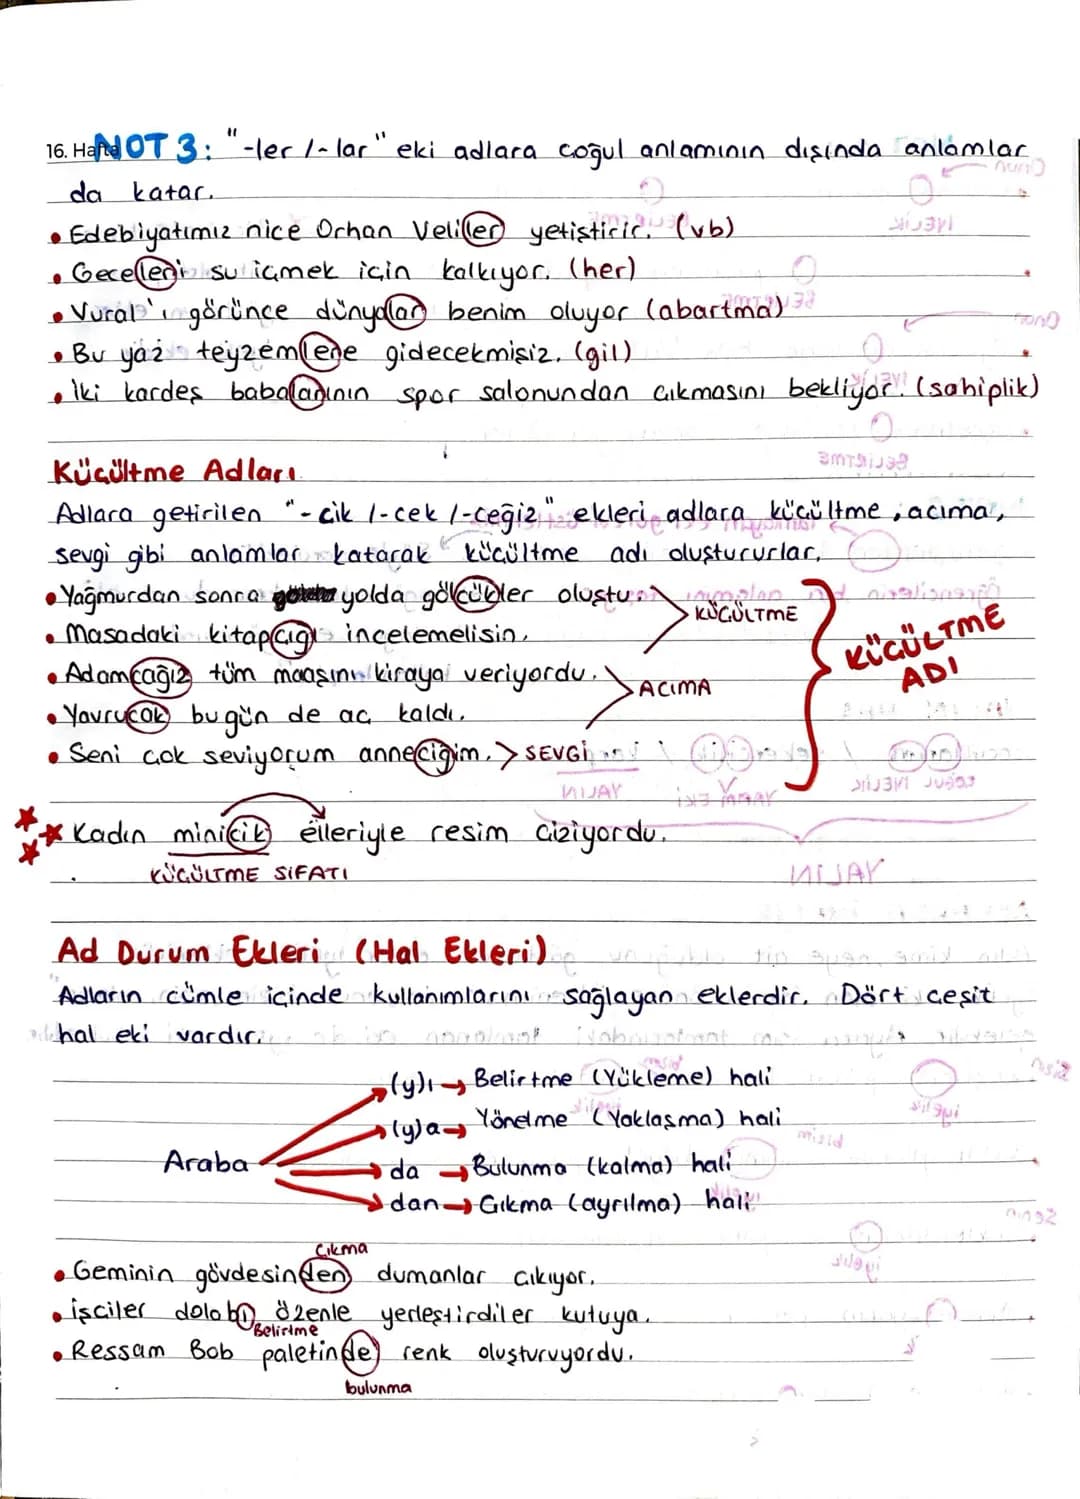 16. Hafta NOT 3: "-ler /-lar" eki adlara çoğul anlamının dışında anlamlar
da katar.
• Edebiyatımız nice Orhan Veliller yetiştirir. (vb)
• Geceleri su içmek için kalkıyor. (her)
• Vural'ı görünce dünyalar benim oluyor (abartma)
• Bu yaz teyzemlere gidecekmişiz. (gil)
• İki kardeş babalarının spor salonundan çıkmasını bekliyor. (sahiplik)
Küçültme Adları
Adlara getirilen "-cik /-cek /-ceğiz" ekleri adlara küçültme, acıma,
sevgi gibi anlamlar katarak küçültme adı oluştururlar.
• Yağmurdan sonra yolda gölcükler oluştu.
• Masadaki kitapçığı incelemelisin.
KÜÇÜLTME
• Adamcağız tüm maaşını kiraya veriyordu.
• Yavrucak bugün de aç kaldı.
ACIMA
• Seni çok seviyorum anneciğim. > SEVGİ
KÜÇÜLTME
ADI
Kadın minicik elleriyle resim çiziyordu.
KÜÇÜLTME SIFATI
Ad Durum Ekleri (Hal Ekleri)
Adların cümle içinde kullanımlarını sağlayan eklerdir. Dört çeşit
hal eki vardır.
Araba
(y)ı → Belirtme (Yükleme) hali
(y)a → Yönelme (Yaklaşma) hali
da → Bulunma (kalma) hali
dan → Çıkma (ayrılma) hali
Çıkma
• Geminin gövdesinden dumanlar çıkıyor.
• işçiler dolabı özenle yerleştirdiler kutuya.
Belirtme
• Ressam Bob paletinde renk oluşturuyordu.
bulunma